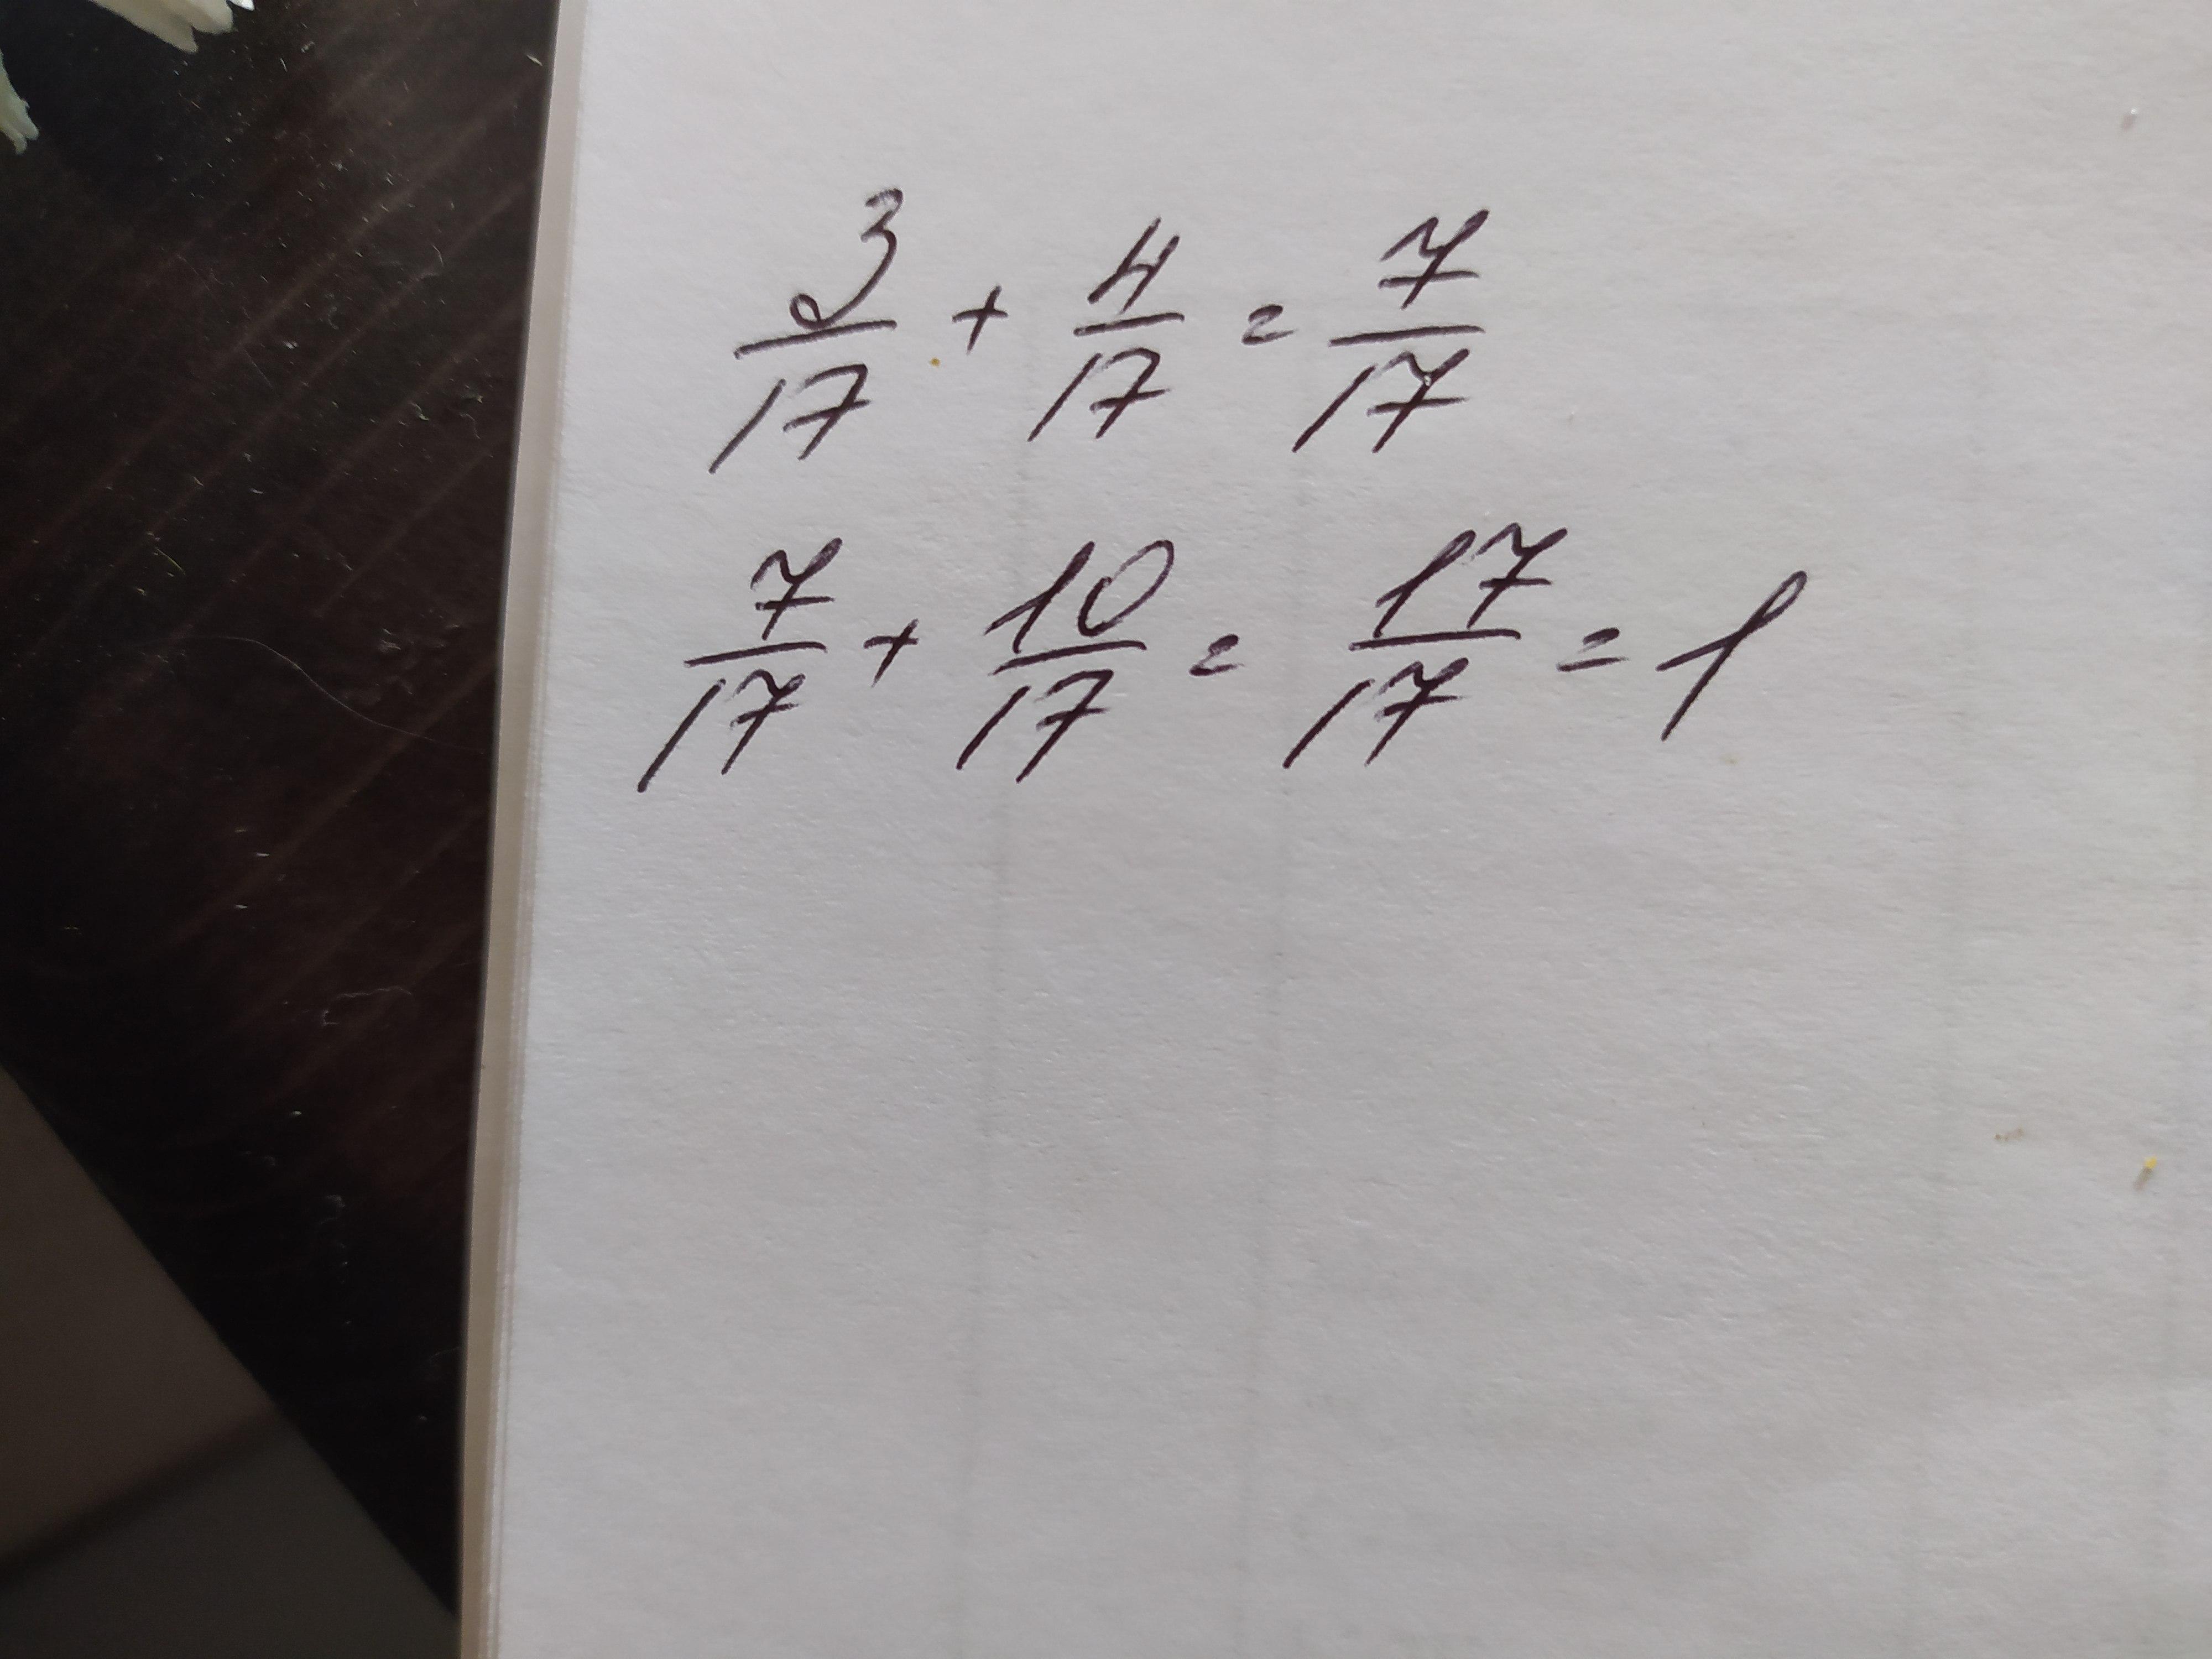 3/17 + 4/17 = 7/17
7/17 + 10/17 = 17/17 = 1